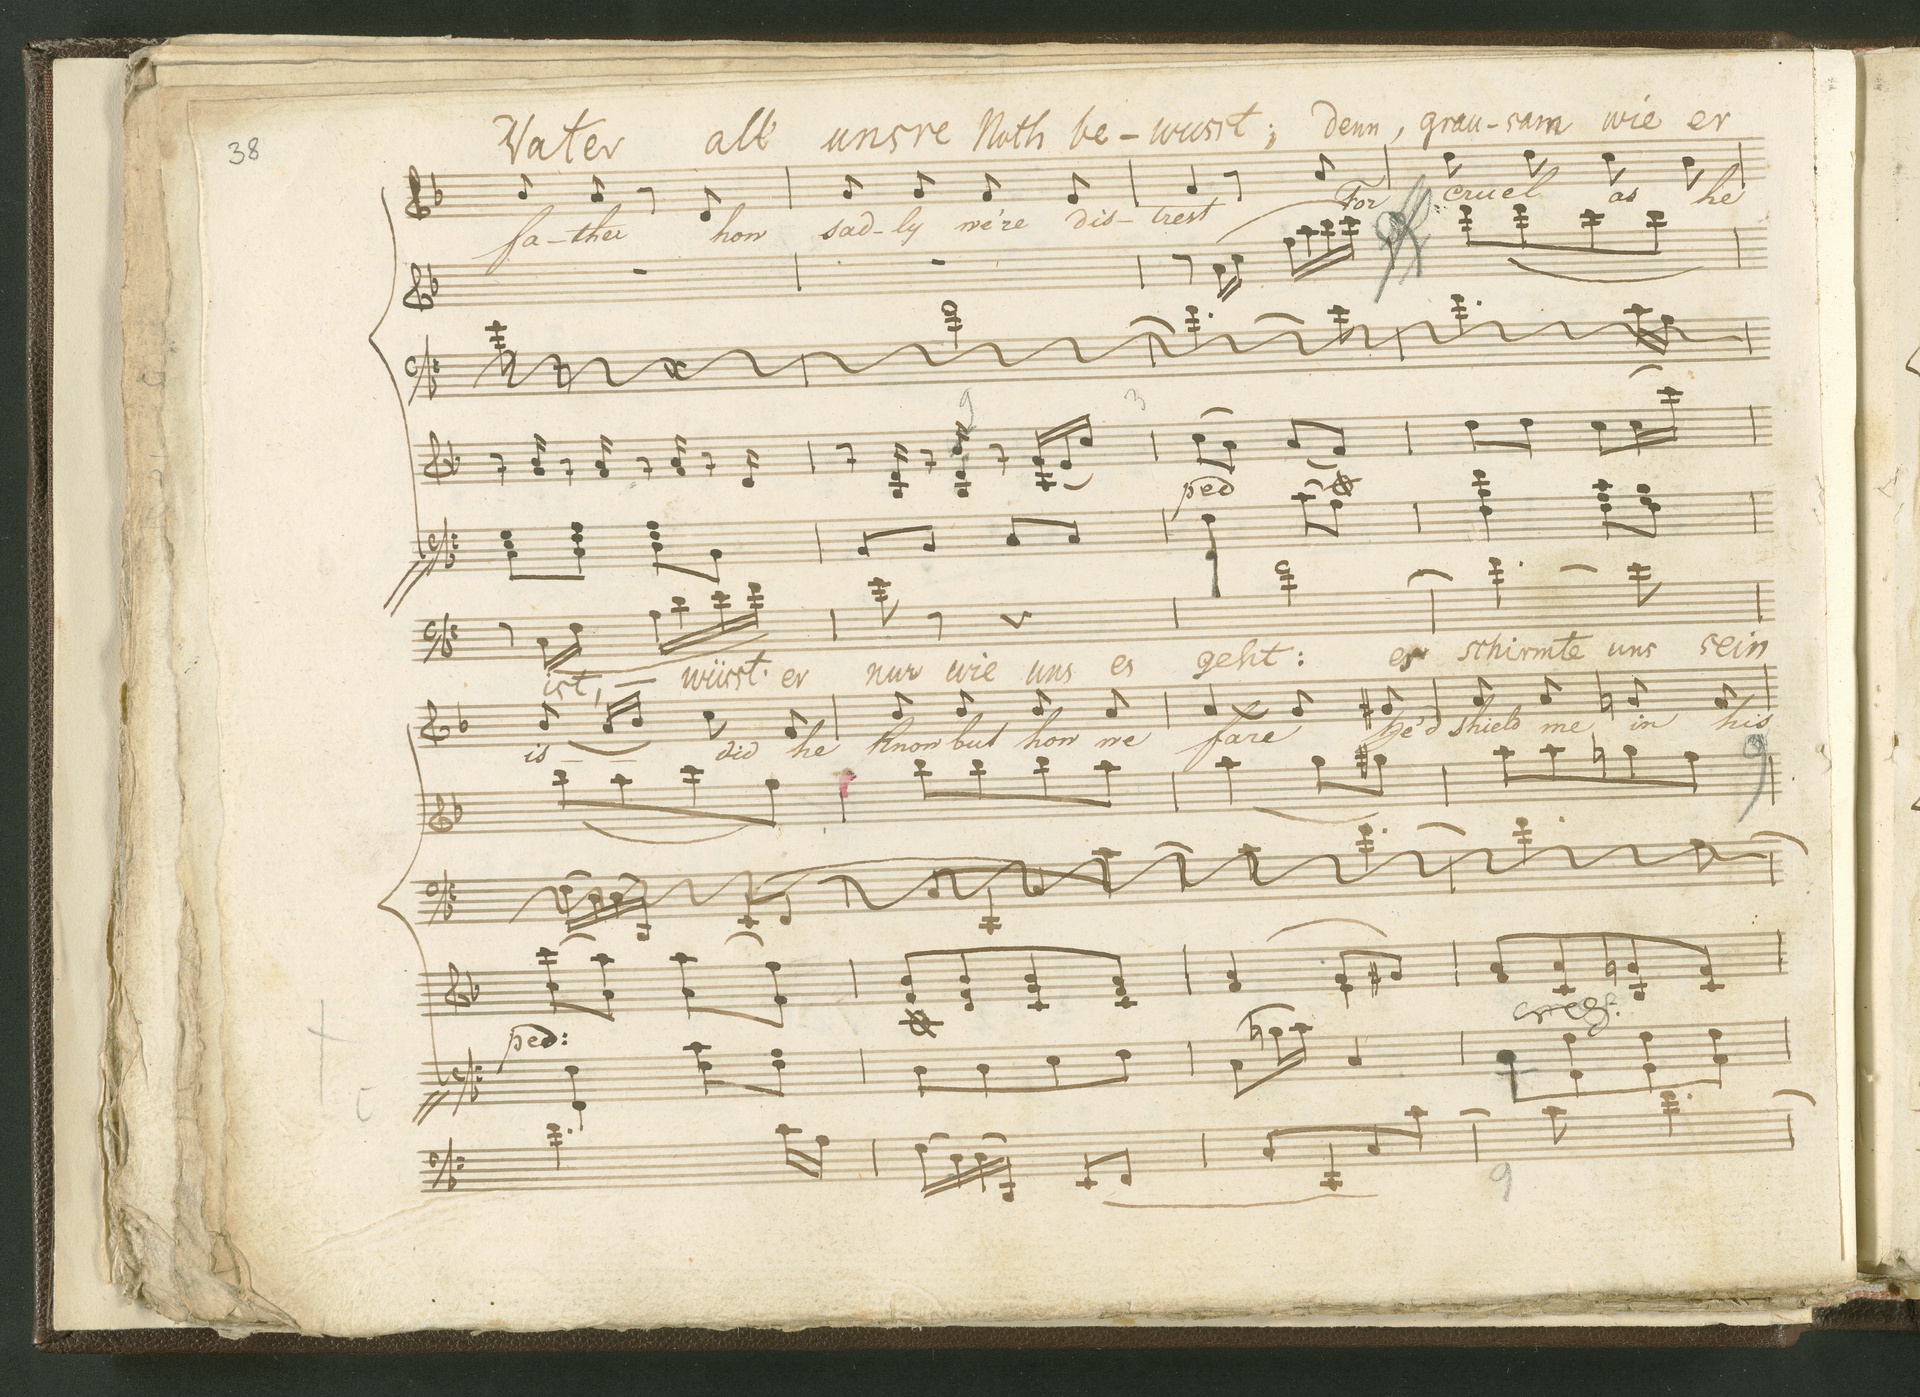 38
Vater all unsre Noth be-wusst; denn, grau-sam wie er
fa-ther how sad-ly we're dis-trest For cruel as he
9 3
ped
ist, wüsst er nur wie uns es geht: er schirmte uns sein
is did he know but how we fare he'd shield me in his
9
cresc.
ped:
9